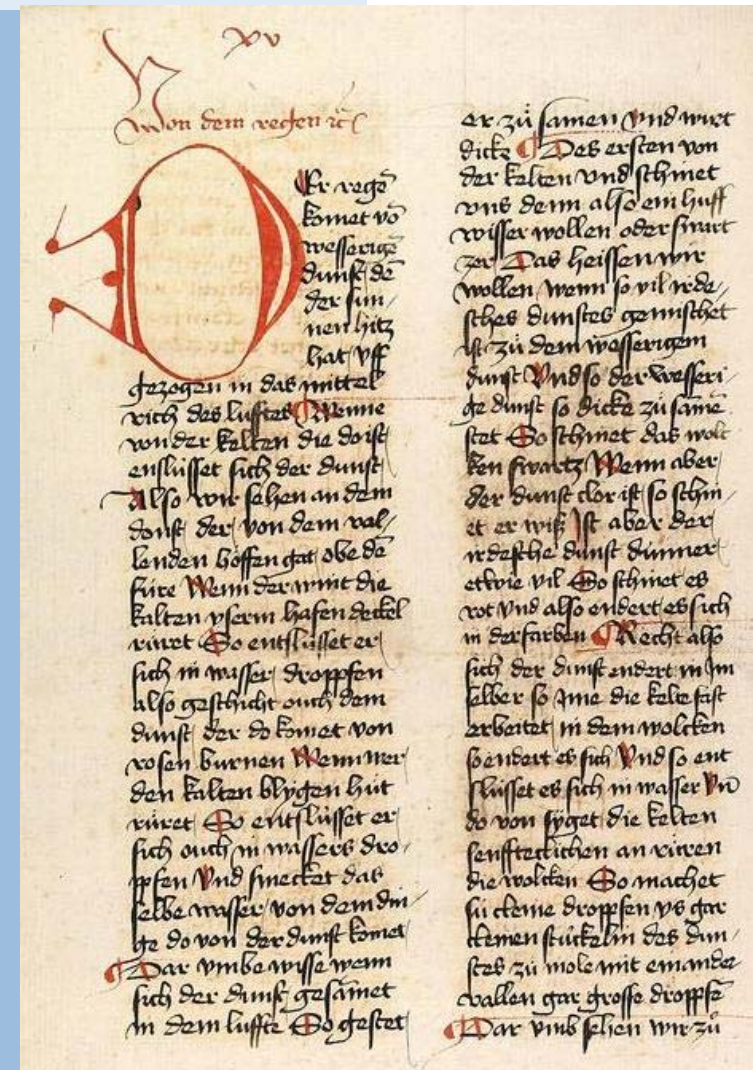 xv
Von dem regen ꝛc
DEr regē
komet vō
wesserigē
dunst dē
der sun-
nen hitz
hat vff
gezogen in das mittel
rich des lufftes Wenne
von der kelten die do ist
enslüsset sich der dunst
Also wir sehen an dem
donst der von dem wal-
lenden hoffen gat obe dē
füre Wenn der wint die
kalten yserin hafen deckel
rüret So entslüsset er
sich in wasser droppfen
also geschicht ouch dem
dunst der do komet von
rosen burnen Wenn mer
den kalten blygen hüt
rüret So entslüsset er
sich ouch in wassers dro-
ppfen Vnd smecket das
selbe wasser von dem din-
ge do von der dunst komet
Dar vmbe wisse wenn
sich der dunst gesāmet
in dem luffte So gestet
er zů samen Vnd wirt
dicke Des ersten von
der kelten vnd schinet
vns denn also ein huff
wisser wollen oder swart
zer Das heissen wir
wollen wenn so vil irde-
sches dunstes gemischet
ist zů dem wesserigem
dunst Vnd so der wesseri-
ge dunst so dicke zů samē
stet So schinet das wolc
ken swartz Wenn aber
der dunst clor ist so schin-
et er wiß Ist aber der
irdesche dunst dünner
etwie vil So schinet es
rot vnd also endert es sich
in der farben Recht also
sich der dunst endert in Jm
selber so Jme die kelte fast
erbeitet in dem wolcken
so endert es sich Vnd so ent
slüsset es sich in wasser Vn̄
do von syget die kelten
senfftecklichen an rieren
die wolcken So machet
sü cleine droppfen vs gar
cleinen stückelin des dun-
stes zů mole mit einander
vallen gar grosse droppfē
Dar vmb sehen wir zů